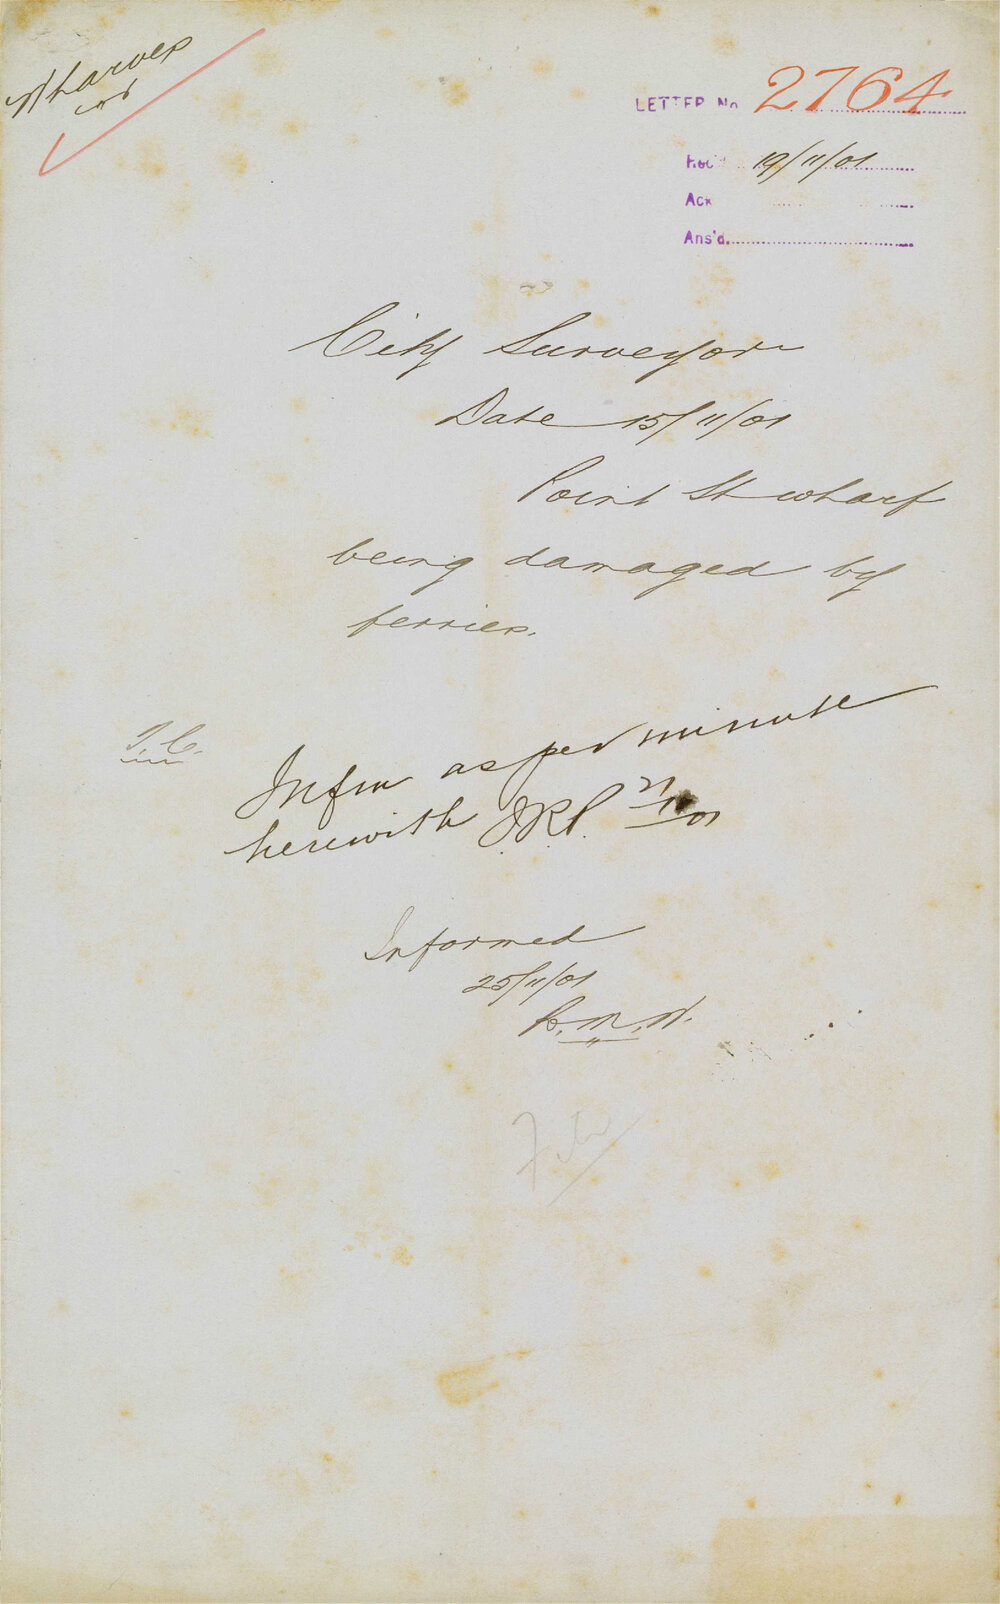 Wharves
LETTER No 2764
Rec'd 19/11/01
Ack
Ans'd.
City Surveyor
Date 15/11/01
Point St wharf
being damaged by
ferries.
T.C.
Infm as per minute
herewith JRP. 21/11/01
Informed
25/11/01
File